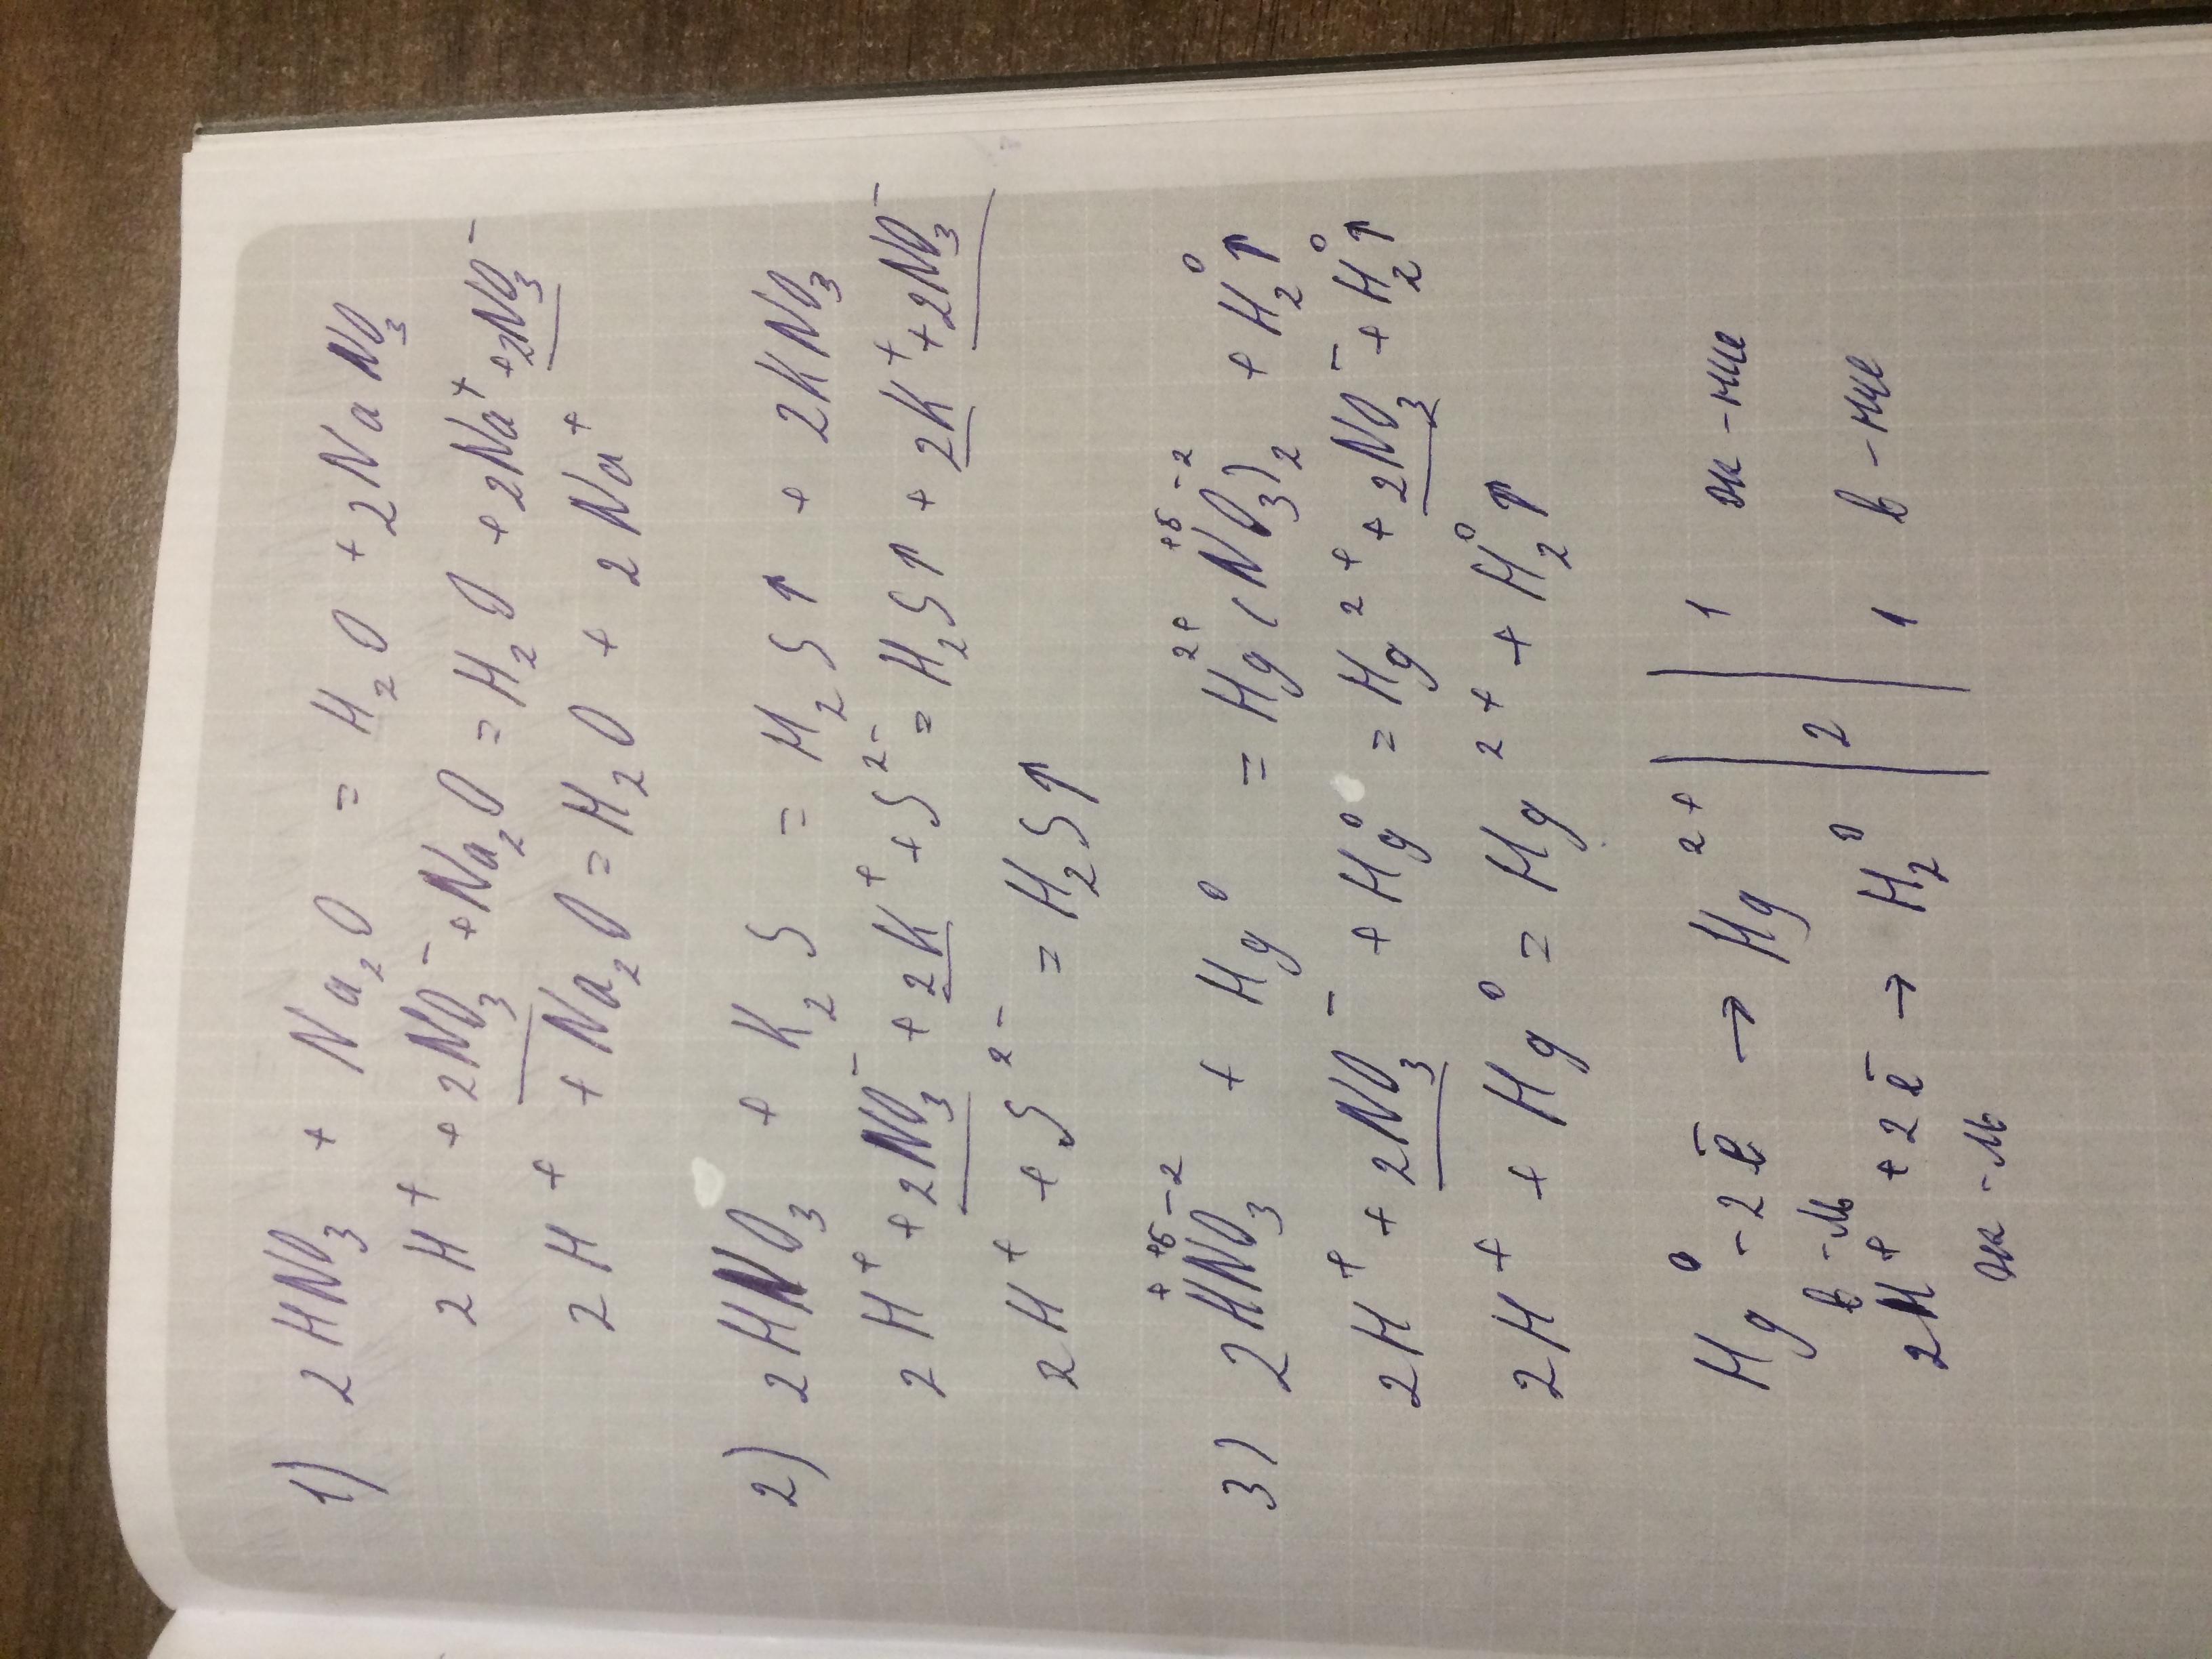 1) 2HNO₃ + Na₂O = H₂O + 2NaNO₃
2H⁺ + 2NO₃⁻ + Na₂O = H₂O + 2Na⁺ + 2NO₃⁻
2H⁺ + Na₂O = H₂O + 2Na⁺
2) 2HNO₃ + K₂S = H₂S↑ + 2KNO₃
2H⁺ + 2NO₃⁻ + 2K⁺ + S²⁻ = H₂S↑ + 2K⁺ + 2NO₃⁻
2H⁺ + S²⁻ = H₂S↑
3) 2H⁺N⁺⁵O₃⁻² + Hg⁰ = Hg²⁺(N⁺⁵O₃⁻²)₂ + H₂⁰↑
2H⁺ + 2NO₃⁻ + Hg⁰ = Hg²⁺ + 2NO₃⁻ + H₂⁰↑
2H⁺ + Hg⁰ = Hg²⁺ + H₂⁰↑
Hg⁰ - 2e̅ → Hg²⁺ | | 1 ок-ние
в-ль | 2 |
2H⁺ + 2e̅ → H₂⁰ | | 1 в-ние
ок-ль